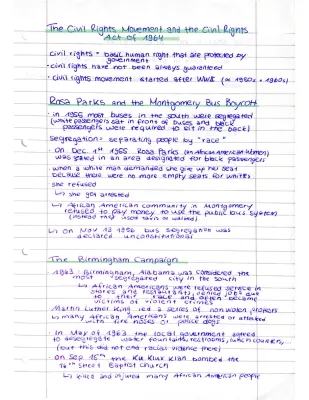 The Civil Rights Movement and the Civil Rights
Act of 1964
civil rights = basic human right that are protected by
government
civil rights have not been always guaranteed
civil rights movement started after WWII (≈ 1950s - 1960s)
Rosa Parks and the Montgomery Bus Boycott
in 1955 most buses in the south were segregated
(white passengers sat in front of buses and black
passengers were required to sit in the back)
segregation = separating people by "race"
On Dec. 1st 1955 Rosa Parks (an African American Women)
was seated in an area designated for black passengers
when a white man demanded she give up her seat
because there were no more empty seats for whites
she refused
↳ she got arrested
↳ African American community in Montgomery
refused to pay money to use the public bus system
(instead they used taxis or walked)
↳ On Nov 13 1956 bus segregation was
declared unconstitutional
The Birmingham Campaign
1963: Birmingham, Alabama was considered the
most segregated city in the south
↳ African Americans were refused service in
stores and restaurants, denied jobs due
to their race and often became
victims of violent crimes
Martin Luther King led a series of non violent protests
↳ many African Americans were arrested or attacked
with fire hoses or police dogs
In May of 1963 the local government agreed
to desegregate water fountains, restrooms, lunch counters,
(but this did not end racial violence there)
on Sep 15th the Ku Klux Klan bombed the
16th Street Baptist Church
↳ killed and injured many African American people